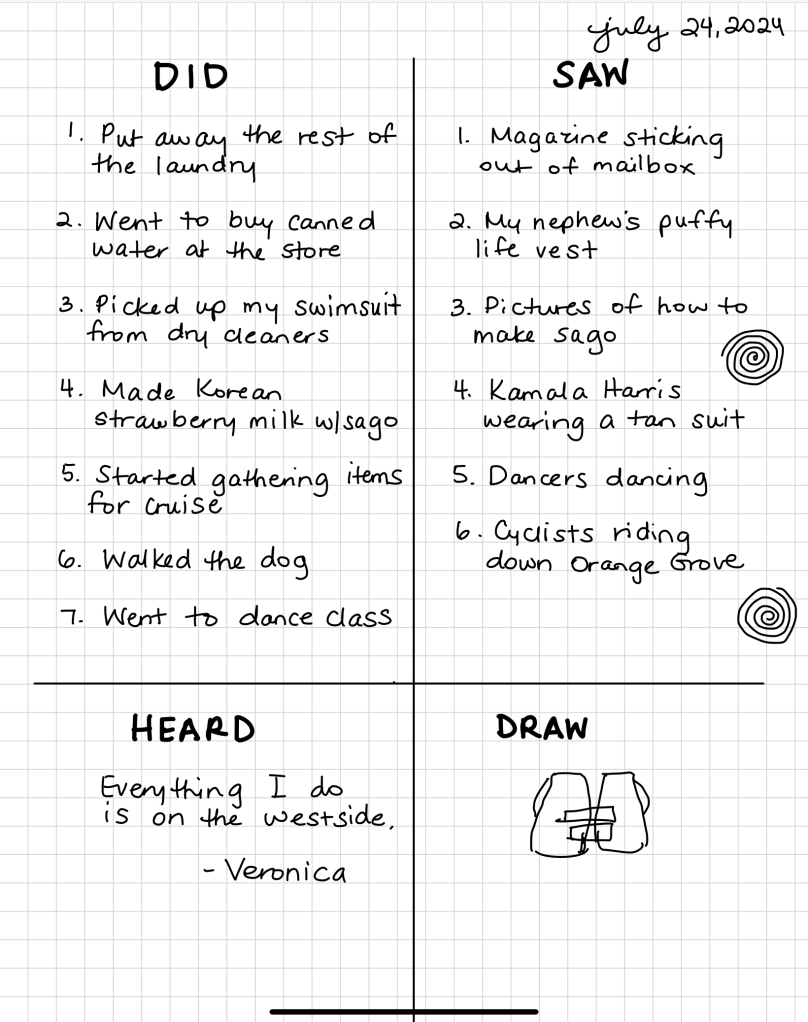 july 24, 2024
DID
1. Put away the rest of
the laundry
2. Went to buy canned
water at the store
3. Picked up my swimsuit
from dry cleaners
4. Made Korean
strawberry milk w/sago
5. Started gathering items
for cruise
6. Walked the dog
7. Went to dance class
SAW
1. Magazine sticking
out of mailbox
2. My nephew's puffy
life vest
3. Pictures of how to
make sago
4. Kamala Harris
wearing a tan suit
5. Dancers dancing
6. Cyclists riding
down Orange Grove
HEARD
Everything I do
is on the westside.
- Veronica
DRAW